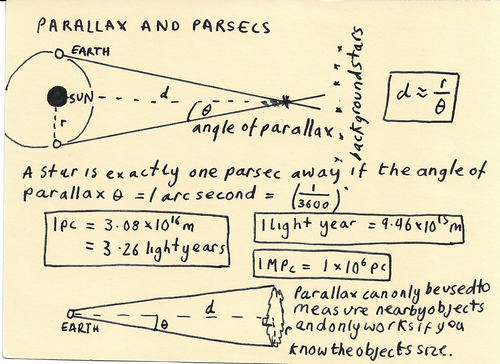 PARALLAX AND PARSECS
EARTH
SUN
d
r
θ
angle of parallax
background stars
d ≈ r/θ
A star is exactly one parsec away if the angle of
parallax θ = 1 arc second = (1/3600)°
1pc = 3.08 x 10¹⁶ m
= 3.26 light years
1 light year = 9.46 x 10¹⁵ m
1 MPc = 1 x 10⁶ pc
EARTH
d
θ
r
Parallax can only be used to
measure nearby objects
and only works if you
know the objects size.